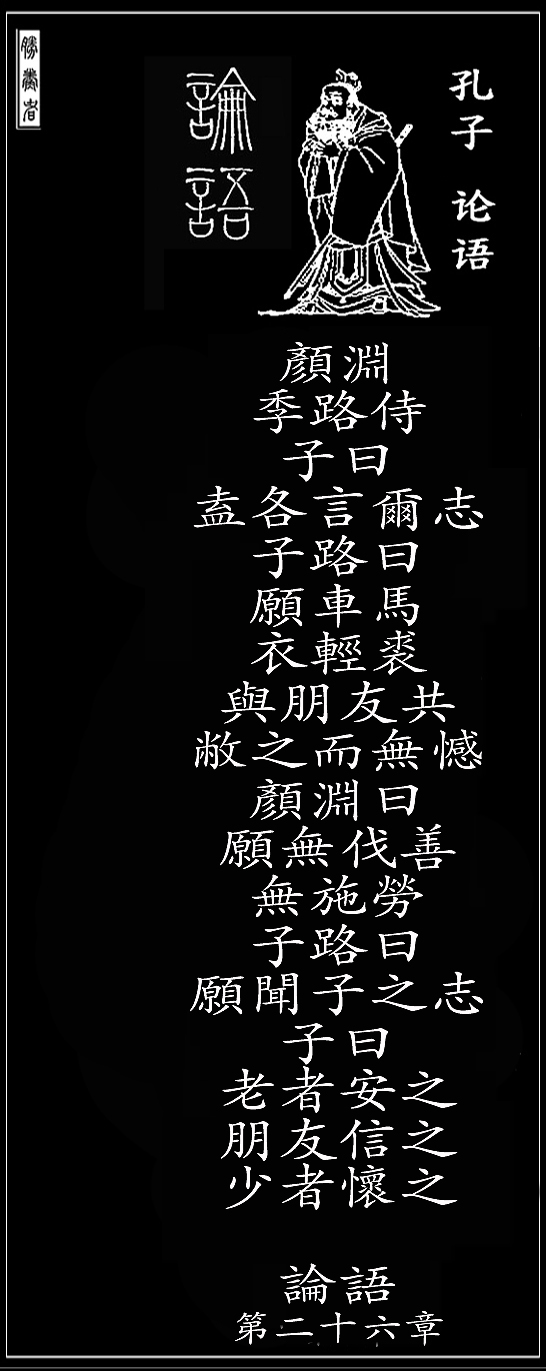 孔子 论语
論語
勝業者
顏淵
季路侍
子曰
盍各言爾志
子路曰
願車馬
衣輕裘
與朋友共
敝之而無憾
顏淵曰
願無伐善
無施勞
子路曰
願聞子之志
子曰
老者安之
朋友信之
少者懷之
論語
第二十六章